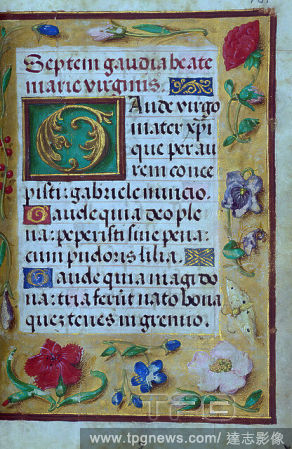 Septem gaudia beate
marie virginis.
Gaude virgo
mater xpi
que per au
rem conce
pisti: gabriele nuncio.
Gaude quia deo ple
na: peperisti sine pena:
cum pudoris lilia.
Gaude quia magi do
na: tria ferut nato bona
que tenes in gremio.
TPG
www.tpgnews.com / 達志影像